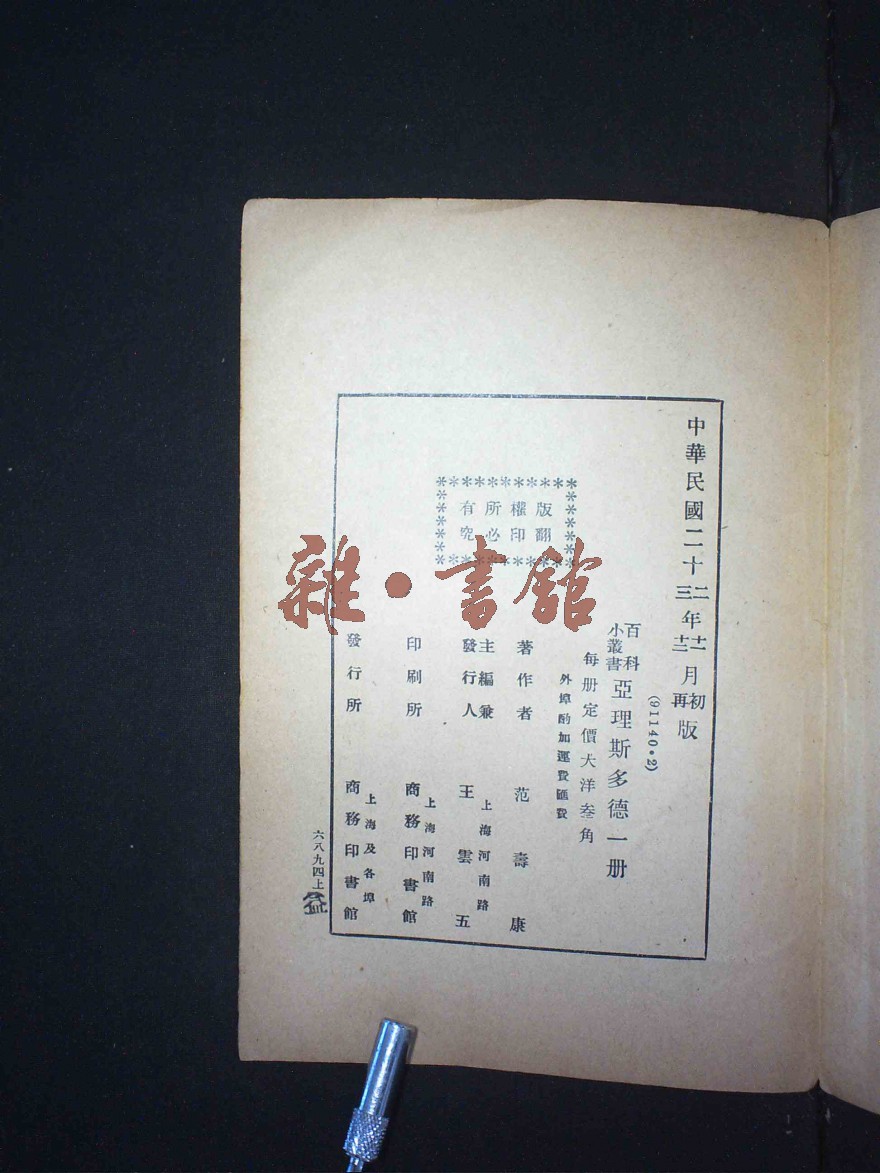 中華民國二十二三年十一十二月初再版
(91140·2)
百科小叢書 亞理斯多德一册
每册定價大洋叁角
外埠酌加運費匯費
著作者 范壽康
主編兼發行人 王雲五
上海河南路
印刷所 商務印書館
上海河南路
發行所 商務印書館
上海及各埠
版權所有
翻印必究
六八九四上
雜·書館